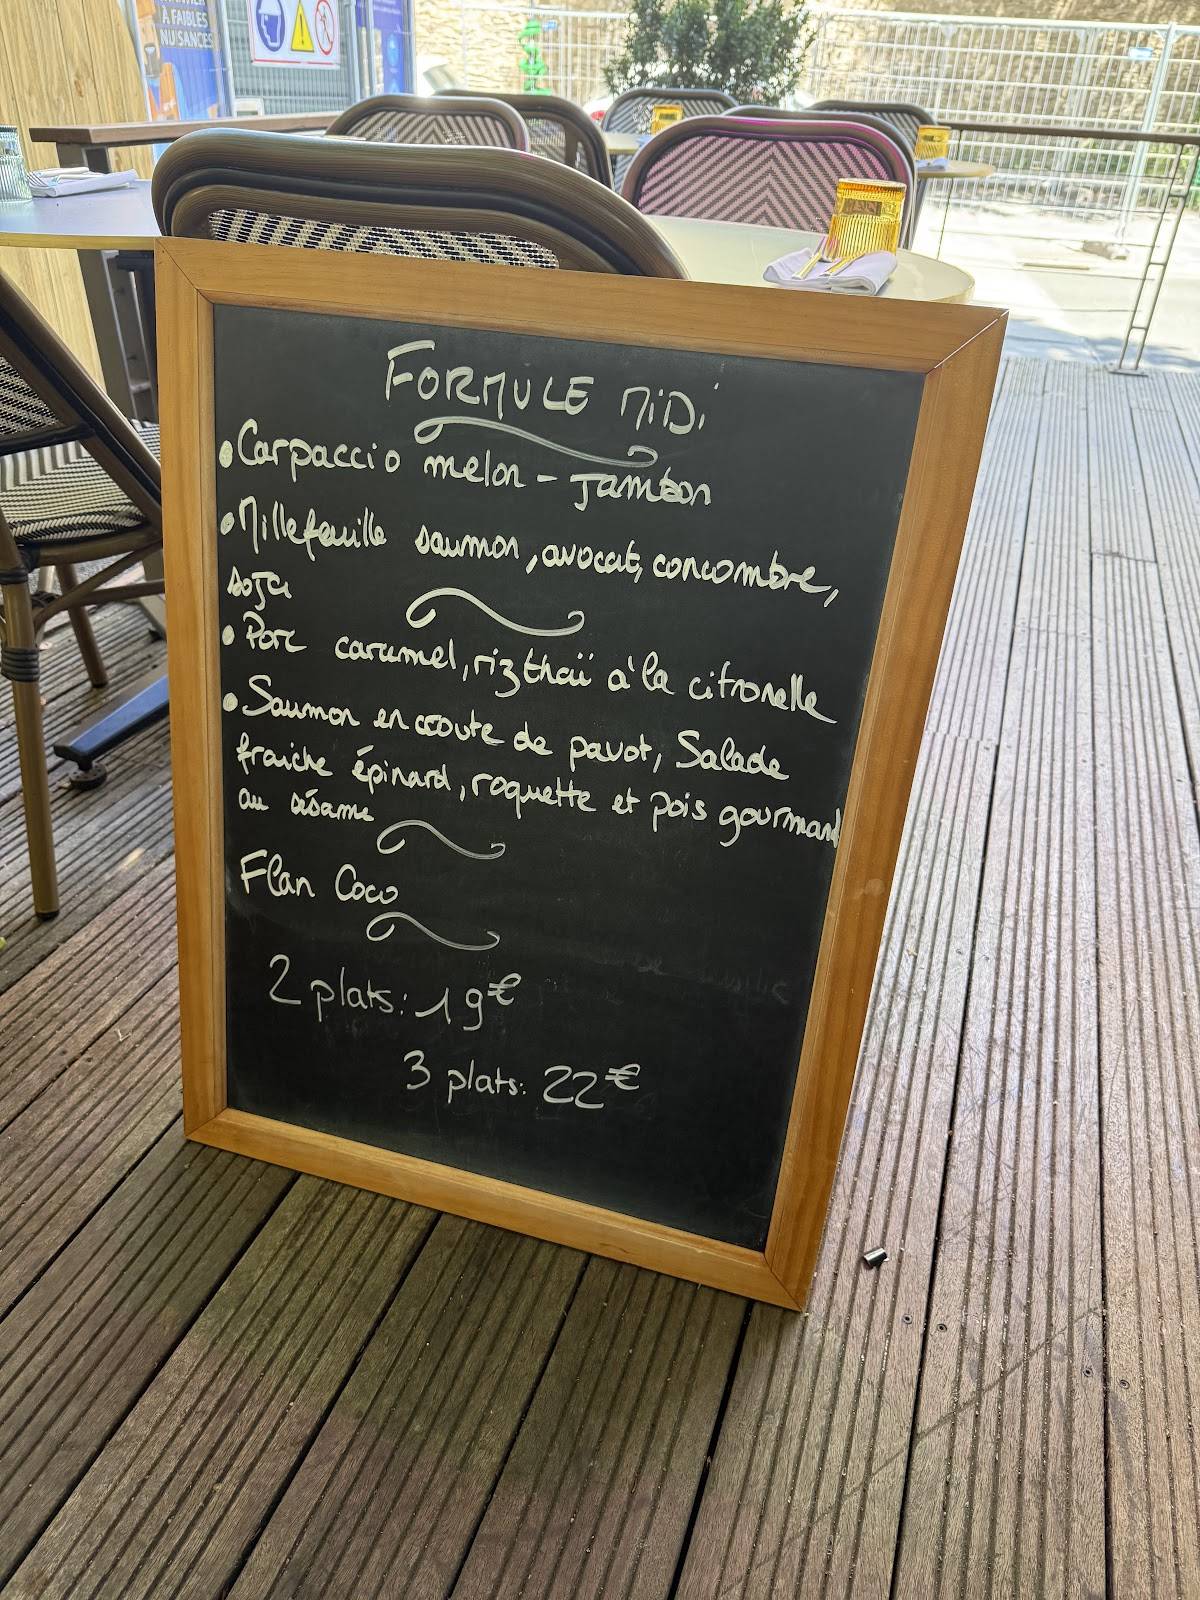 À FAIBLES
NUISANCES
FORMULE MiDi
• Carpaccio melon - Jambon
• Millefeuille saumon, avocat, concombre,
soja
• Porc caramel, riz thaï à la citronelle
• Saumon en croute de pavot, Salade
fraiche épinard, roquette et pois gourmand
au sésame
Flan Coco
2 plats: 19€
3 plats: 22€